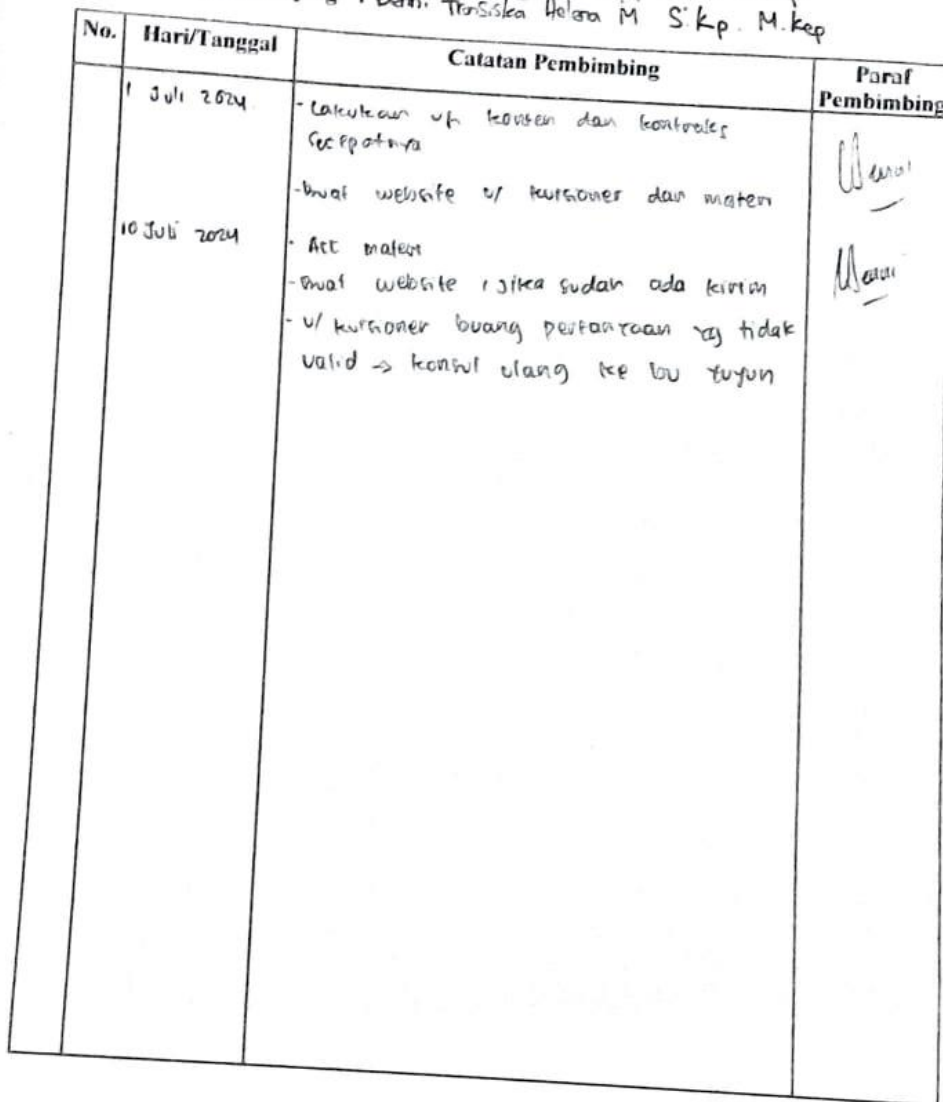 Helena M S.Kp. M.Kep
No. Hari/Tanggal Catatan Pembimbing Paraf Pembimbing
1 Juli 2024
- Lakukan uji konten dan konstruk
secepatnya
- Buat website u/ kuesioner dan materi
10 Juli 2024
- Acc materi
- Buat website, jika sudah ada kirim
- u/ kuesioner buang pertanyaan yg tidak
valid → konsul ulang ke bu yuyun